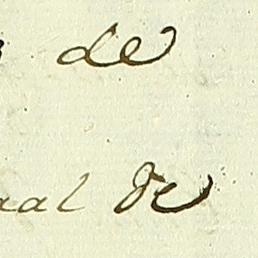 de
aal de